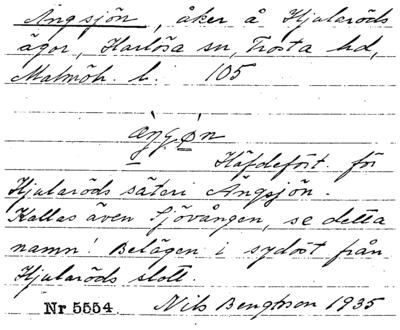 Ängsjön, åker å Hjularöds
ägor, Harlösa sn, Frosta hd,
Malmöh. l. 105
Häfdefört för
Hjularöds säteri Ängsjön.
Kallas även Sjövången, se detta
namn! Belägen i sydost från
Hjularöds slott.
Nr 5554 Nils Bengtsson 1935